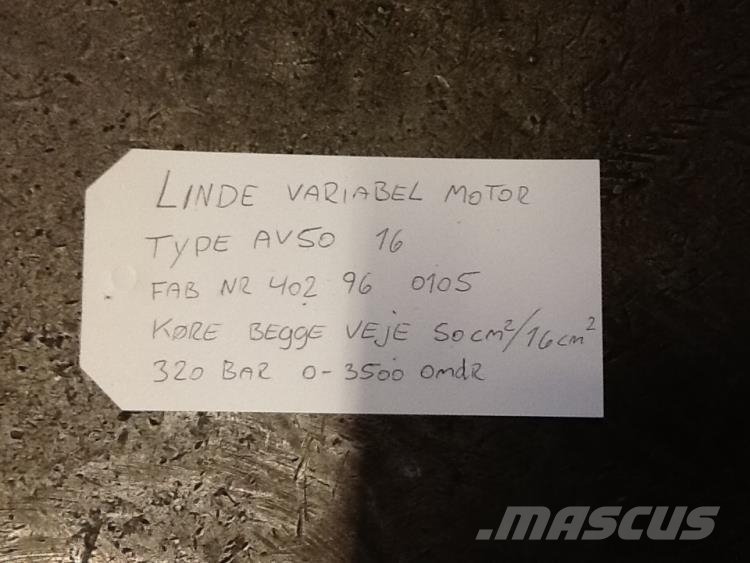 LINDE VARIABEL MOTOR
TYPE AV50 16
FAB NR 402 96 0105
KØRE BEGGE VEJE 50cm²/16cm²
320 BAR 0-3500 OmdR
.MASCUS